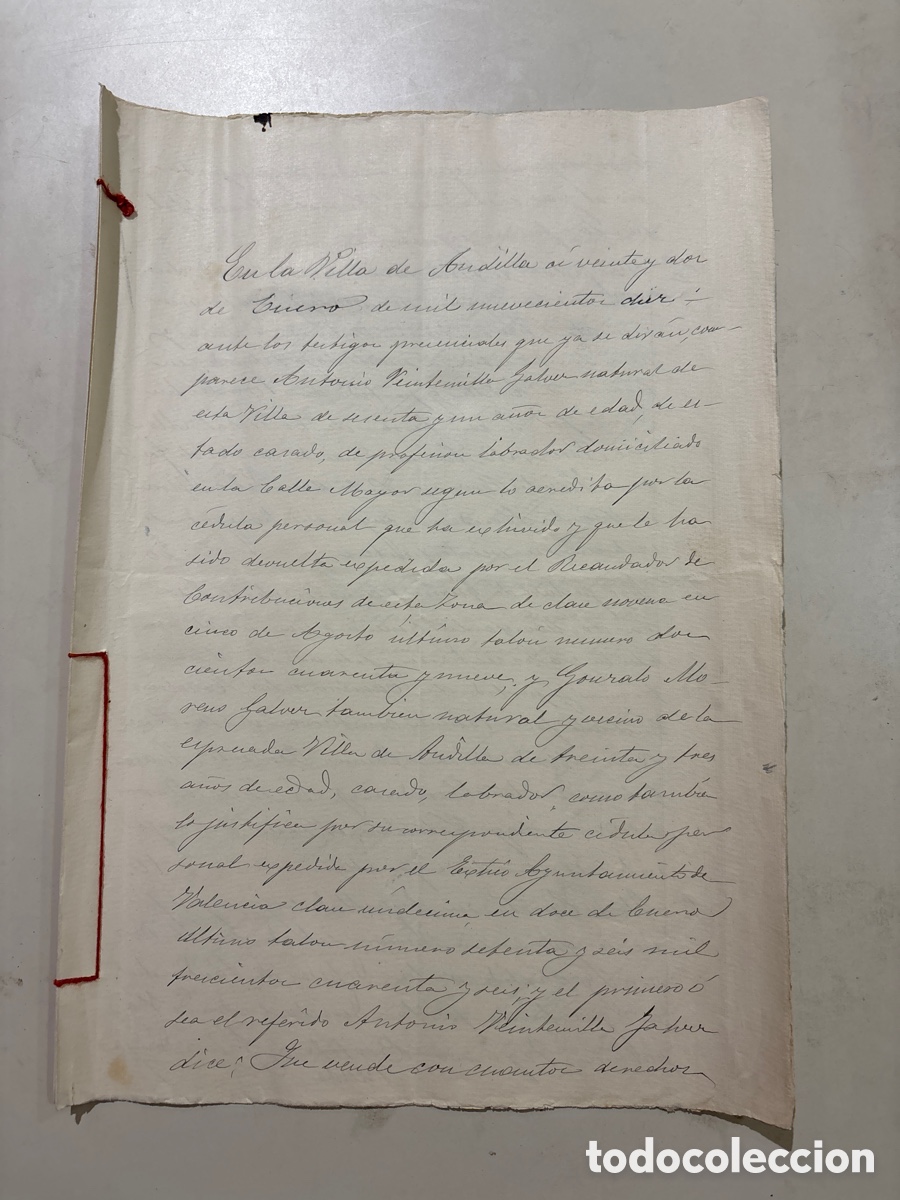 En la Villa de Andilla á veinte y dos
de Enero de mil nuevecientos diez:
ante los testigos presenciales que ya se dirán, com-
parece Antonio Veintemilla Galver natural de
esta Villa de sesenta y un años de edad, de es-
tado casado, de profesion labrador domiciliado
en la Calle Mayor segun lo acredita por la
cédula personal que ha exhivido y que le ha
sido devuelta expedida por el Recaudador de
Contribuciones de esta Zona de clase novena en
cinco de Agosto último talon numero dos
cientos cuarenta y nueve; y Gonzalo Mo-
reno Galver tambien natural y vecino de la
espresada Villa de Andilla de treinta y tres
años de edad, casado, labrador, como también
lo justifica por su correspondiente cédula per
sonal expedida por el Extmo Ayuntamiento de
Valencia clase undecima en doce de Enero
último talon número setenta y seis mil
trescientos cuarenta y seis; y el primero ó
sea el referido Antonio Veintemilla Galver
dice: Que vende con cuantos derechos
todocoleccion